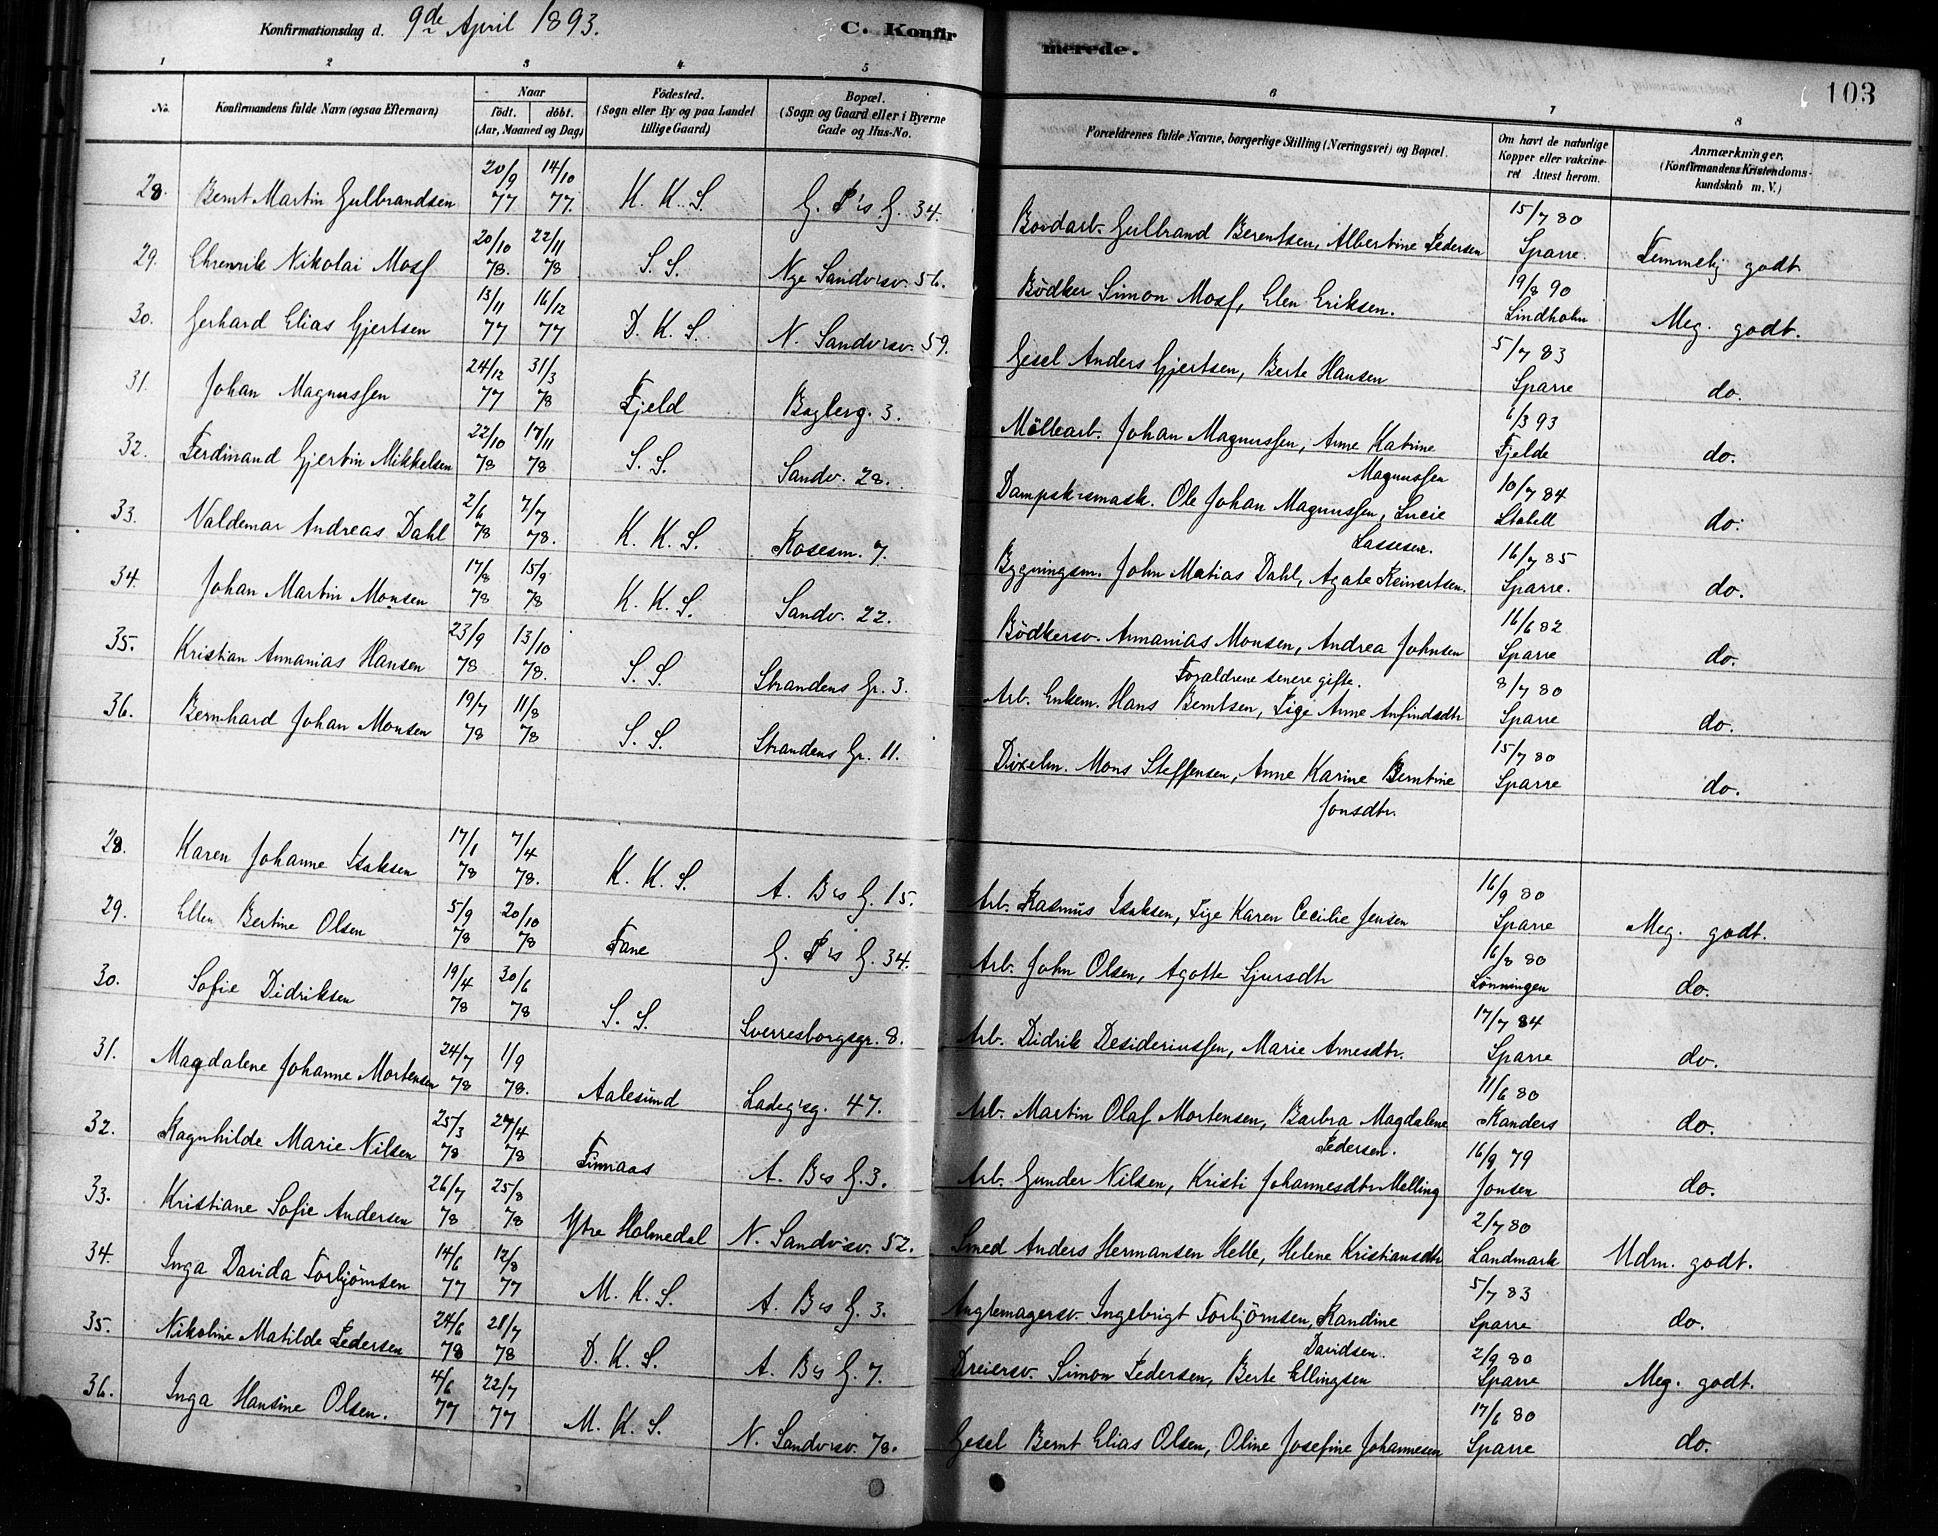 Konfirmationsdag d. 9de April 1893.
C. Konfirmerede.
103
1 2 3 4 5 6 7 8
No.
Konfirmandens fulde Navn (ogsaa Efternavn)
Naar
födt. döbt.
(Aar, Maaned og Dag)
Födested.
(Sogn eller By og paa Landet tillige Gaard)
Bopæl.
(Sogn og Gaard eller i Byerne Gade og Hus-No.
Forældrenes fulde Navne, borgerlige Stilling (Næringsvei) og Bopæl.
Om havt de naturlige Kopper eller vakcineret Attest herom.
Anmærkninger.
(Konfirmandens Kristendomskundskab m. V.)
28. Bernt Martin Gulbrandsen 20/9 77 14/10 77. K. K. S. G. P's G. 34. Bordarb. Gulbrand Berentsen, Albertine Pedersen 15/7 80 Sparre. Temmelig godt
29. Ehrenrik Nikolai Mosf 20/10 78. 22/11 78 S. S. Nye Sandvsv. 56. Bödker Simon Mosf, Elen Eriksen. 19/8 90 Lindholm Meg. godt.
30. Gerhard Elias Gjertsen 13/11 77 16/12 77 D. K. S. N. Sandvsv. 59. Gesel Anders Gjertsen, Berte Hansen 5/7 83 Sparre do.
31. Johan Magnussen 24/12 77 31/3 78 Fjeld Bagberg. 3. Möllearb. Johan Magnussen, Anne Katrine Magnussen 6/3 93 Fjelde do.
32. Ferdinand Gjertin Mikkelsen 22/10 78 17/11 78 S. S. Sandv. 28. Dampsk.smask. Ole Johan Magnussen, Lucie Lassesen. 10/7 84 Stabell do.
33. Valdemar Andreas Dahl 2/6 78 7/7 78. K. K. S. Rosesm. 7. Bygningsm. John Matias Dahl, Agate Reinertsen. 16/7 85 Sparre. do.
34. Johan Martin Monsen 17/8 78 15/9 78 K. K. S. Sandv. 22. Bödkersv. Annanias Monsen, Andrea Johnsen 16/6 82 Sparre do.
Forældrene senere gifte.
35. Kristian Annanias Hansen 23/9 78 13/10 78. S. S. Strandens Gr. 3. Arb. Enkem. Hans Berntsen, Pige Anne Anfindsdtr 8/7 80 Sparre do.
36. Bernhard Johan Monsen 19/7 78 11/8 78 S. S. Strandens Gr. 11. Dixelm. Mons Steffensen, Anne Karine Berntine Jonsdtr. 15/7 80 Sparre do.
28. Karen Johanne Isaksen 17/1 78 7/4 78. K. K. S. A. B's G. 15. Arb. Rasmus Isaksen, Pige Karen Cecilie Jensen 16/9 80 Sparre Meg. godt.
29. Ellen Bertine Olsen 5/9 78 20/10 78 Fane G. P's G. 34. Arb. John Olsen, Agotte Sjursdtr 16/8 80 Lönningen do.
30. Sofie Didriksen 19/4 78 30/6 78 S. S. Sverresborgsgr. 8. Arb. Didrik Desideriussen, Marie Arnesdtr. 17/7 84 Sparre do.
31. Magdalene Johanne Mortensen 24/7 78 1/9 78. Aalesund Ladeg'sg. 47. Arb. Martin Olaf Mortensen, Barbra Magdalene Pedersen. 11/6 80 Randers do.
32. Ragnhilde Marie Nilsen 25/3 78 27/4 78 Finnaas A. B's G. 3. Arb. Gunder Nilsen, Kristi Johannesdtr Melling 16/9 79 Jonsen do.
33. Kristiane Sofie Andersen 26/7 78 25/8 78 Ytre Holmedal N. Sandv'sv. 52. Smed Anders Hermansen Helle, Helene Kristiansdtr 2/7 80 Landmark Udm. godt.
34. Inga Davida Torbjörnsen 14/6 77 12/8 77 M. K. S. A. B's G. 3. Anglemagersv. Ingebrigt Torbjörnsen, Randine Davidsen. 5/7 83 Sparre do.
35. Nikoline Matilde Pedersen 24/6 78 21/7 78 D. K. S. A. B's G. 7. Dreiersv. Simon Pedersen, Berte Ellingsen 2/9 80 Sparre Meg. godt.
36. Inga Hansine Olsen. 4/6 77 22/7 77 M. K. S. N. Sandvsv. 78. Gesel Bernt Elias Olsen, Oline Josefine Johannesen 17/6 80 Sparre do.